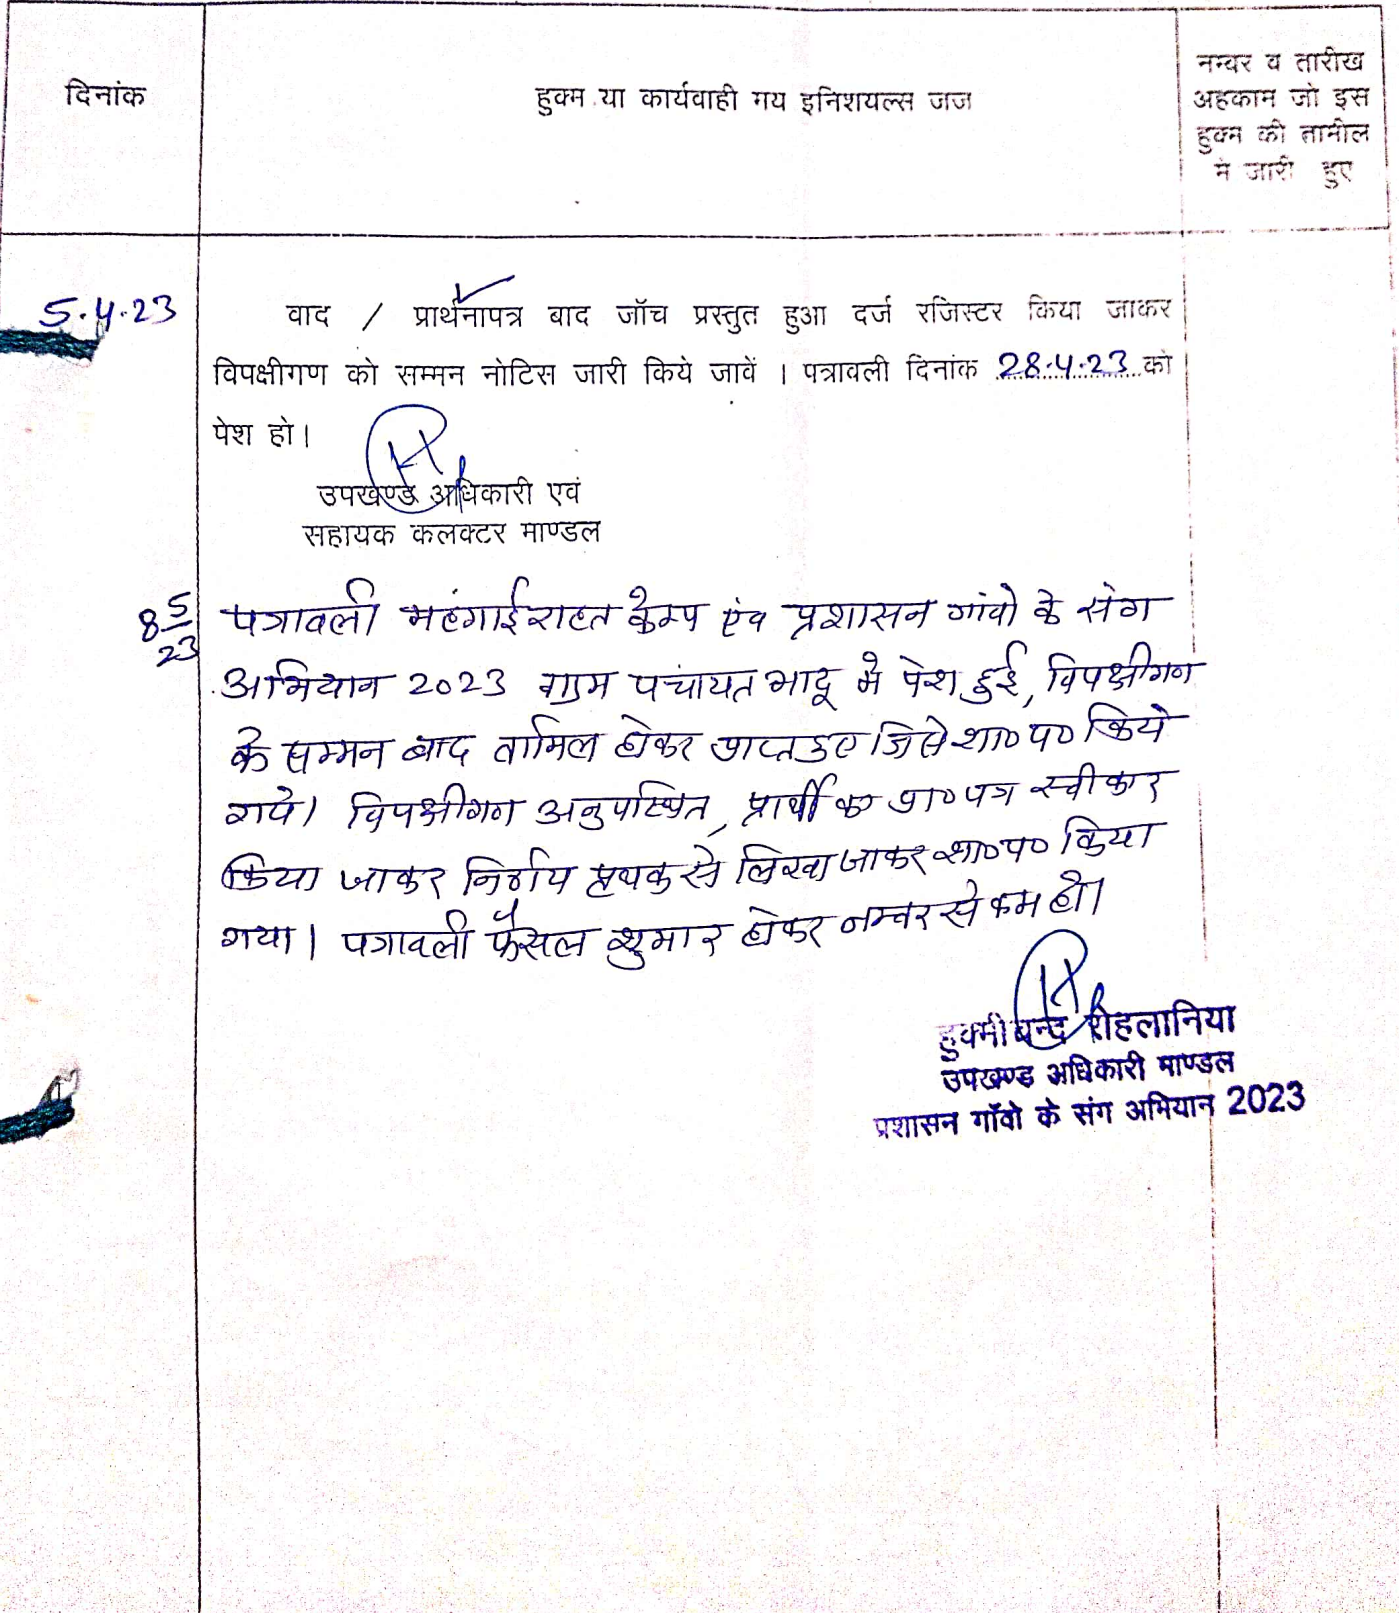 दिनांक
हुक्म या कार्यवाही गय इनिशयल्स जज
नम्वर व तारीख
अहकाम जो इस
हुक्म की तामील
मे जारी हुए
5.4.23
वाद / प्रार्थनापत्र बाद जॉच प्रस्तुत हुआ दर्ज रजिस्टर किया जाकर
विपक्षीगण को सम्मन नोटिस जारी किये जावें । पत्रावली दिनांक 28.4.23 को
पेश हो।
उपखण्ड अधिकारी एवं
सहायक कलक्टर माण्डल
8 5/23
पत्रावली महंगाई राहत केम्प एंव प्रशासन गांवो के संग
अभियान 2023 ग्राम पंचायत भादू मे पेश हुई, विपक्षीगण
के सम्मन बाद तामिल होकर प्राप्त हुए जिसे शा०प० किये
गये। विपक्षीगण अनुपस्थित, प्रार्थी का प्रा०पत्र स्वीकार
किया जाकर निर्णय प्रथक से लिखा जाकर शा०प० किया
गया। पत्रावली फैसल शुमार होकर नम्बर से कम हो।
हुक्मी चन्द रोहलानिया
उपखण्ड अधिकारी माण्डल
प्रशासन गॉवो के संग अभियान 2023